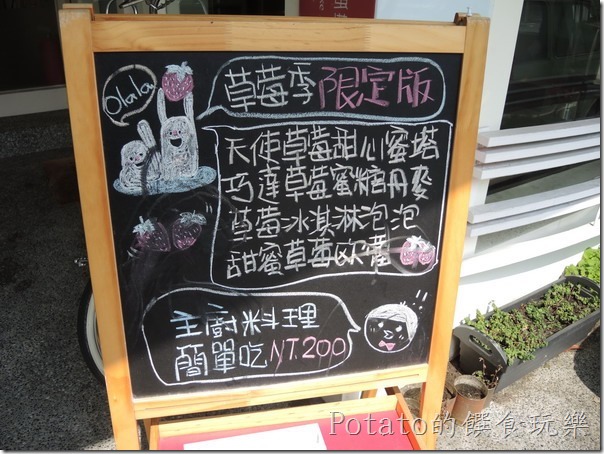 Olala
草莓季限定版
天使草莓甜心蜜塔
巧達草莓蜜糖丹麥
草莓冰淇淋泡泡
甜蜜草莓歐蕾
主廚料理
簡單吃NT.200
Potato的饌食玩樂